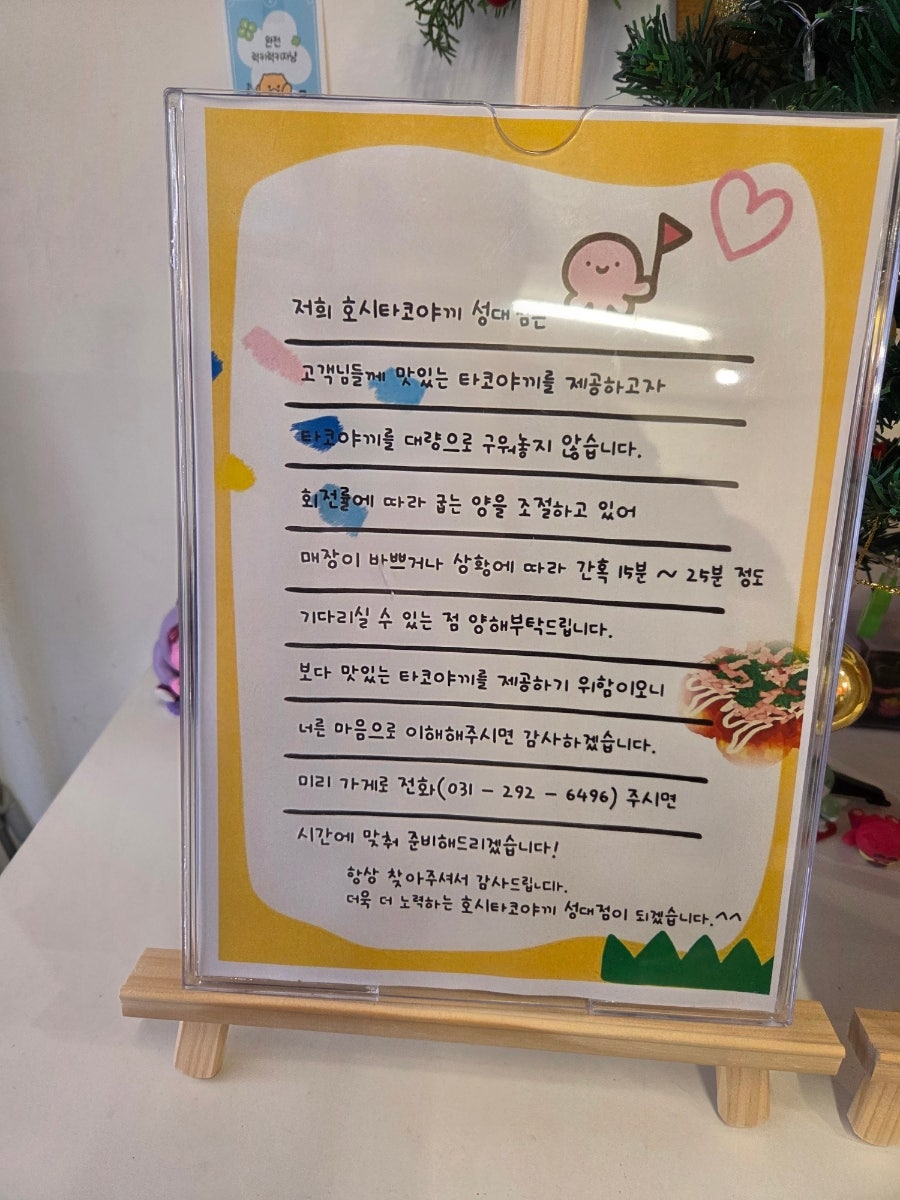 완전
럭키럭키자냥
저희 호시타코야끼 성대점은
고객님들께 맛있는 타코야끼를 제공하고자
타코야끼를 대량으로 구워놓지 않습니다.
회전률에 따라 굽는 양을 조절하고 있어
매장이 바쁘거나 상황에 따라 간혹 15분 ~ 25분 정도
기다리실 수 있는 점 양해부탁드립니다.
보다 맛있는 타코야끼를 제공하기 위함이오니
너른 마음으로 이해해주시면 감사하겠습니다.
미리 가게로 전화(031 - 292 - 6496) 주시면
시간에 맞춰 준비해드리겠습니다!
항상 찾아주셔서 감사드립니다.
더욱 더 노력하는 호시타코야끼 성대점이 되겠습니다.^^